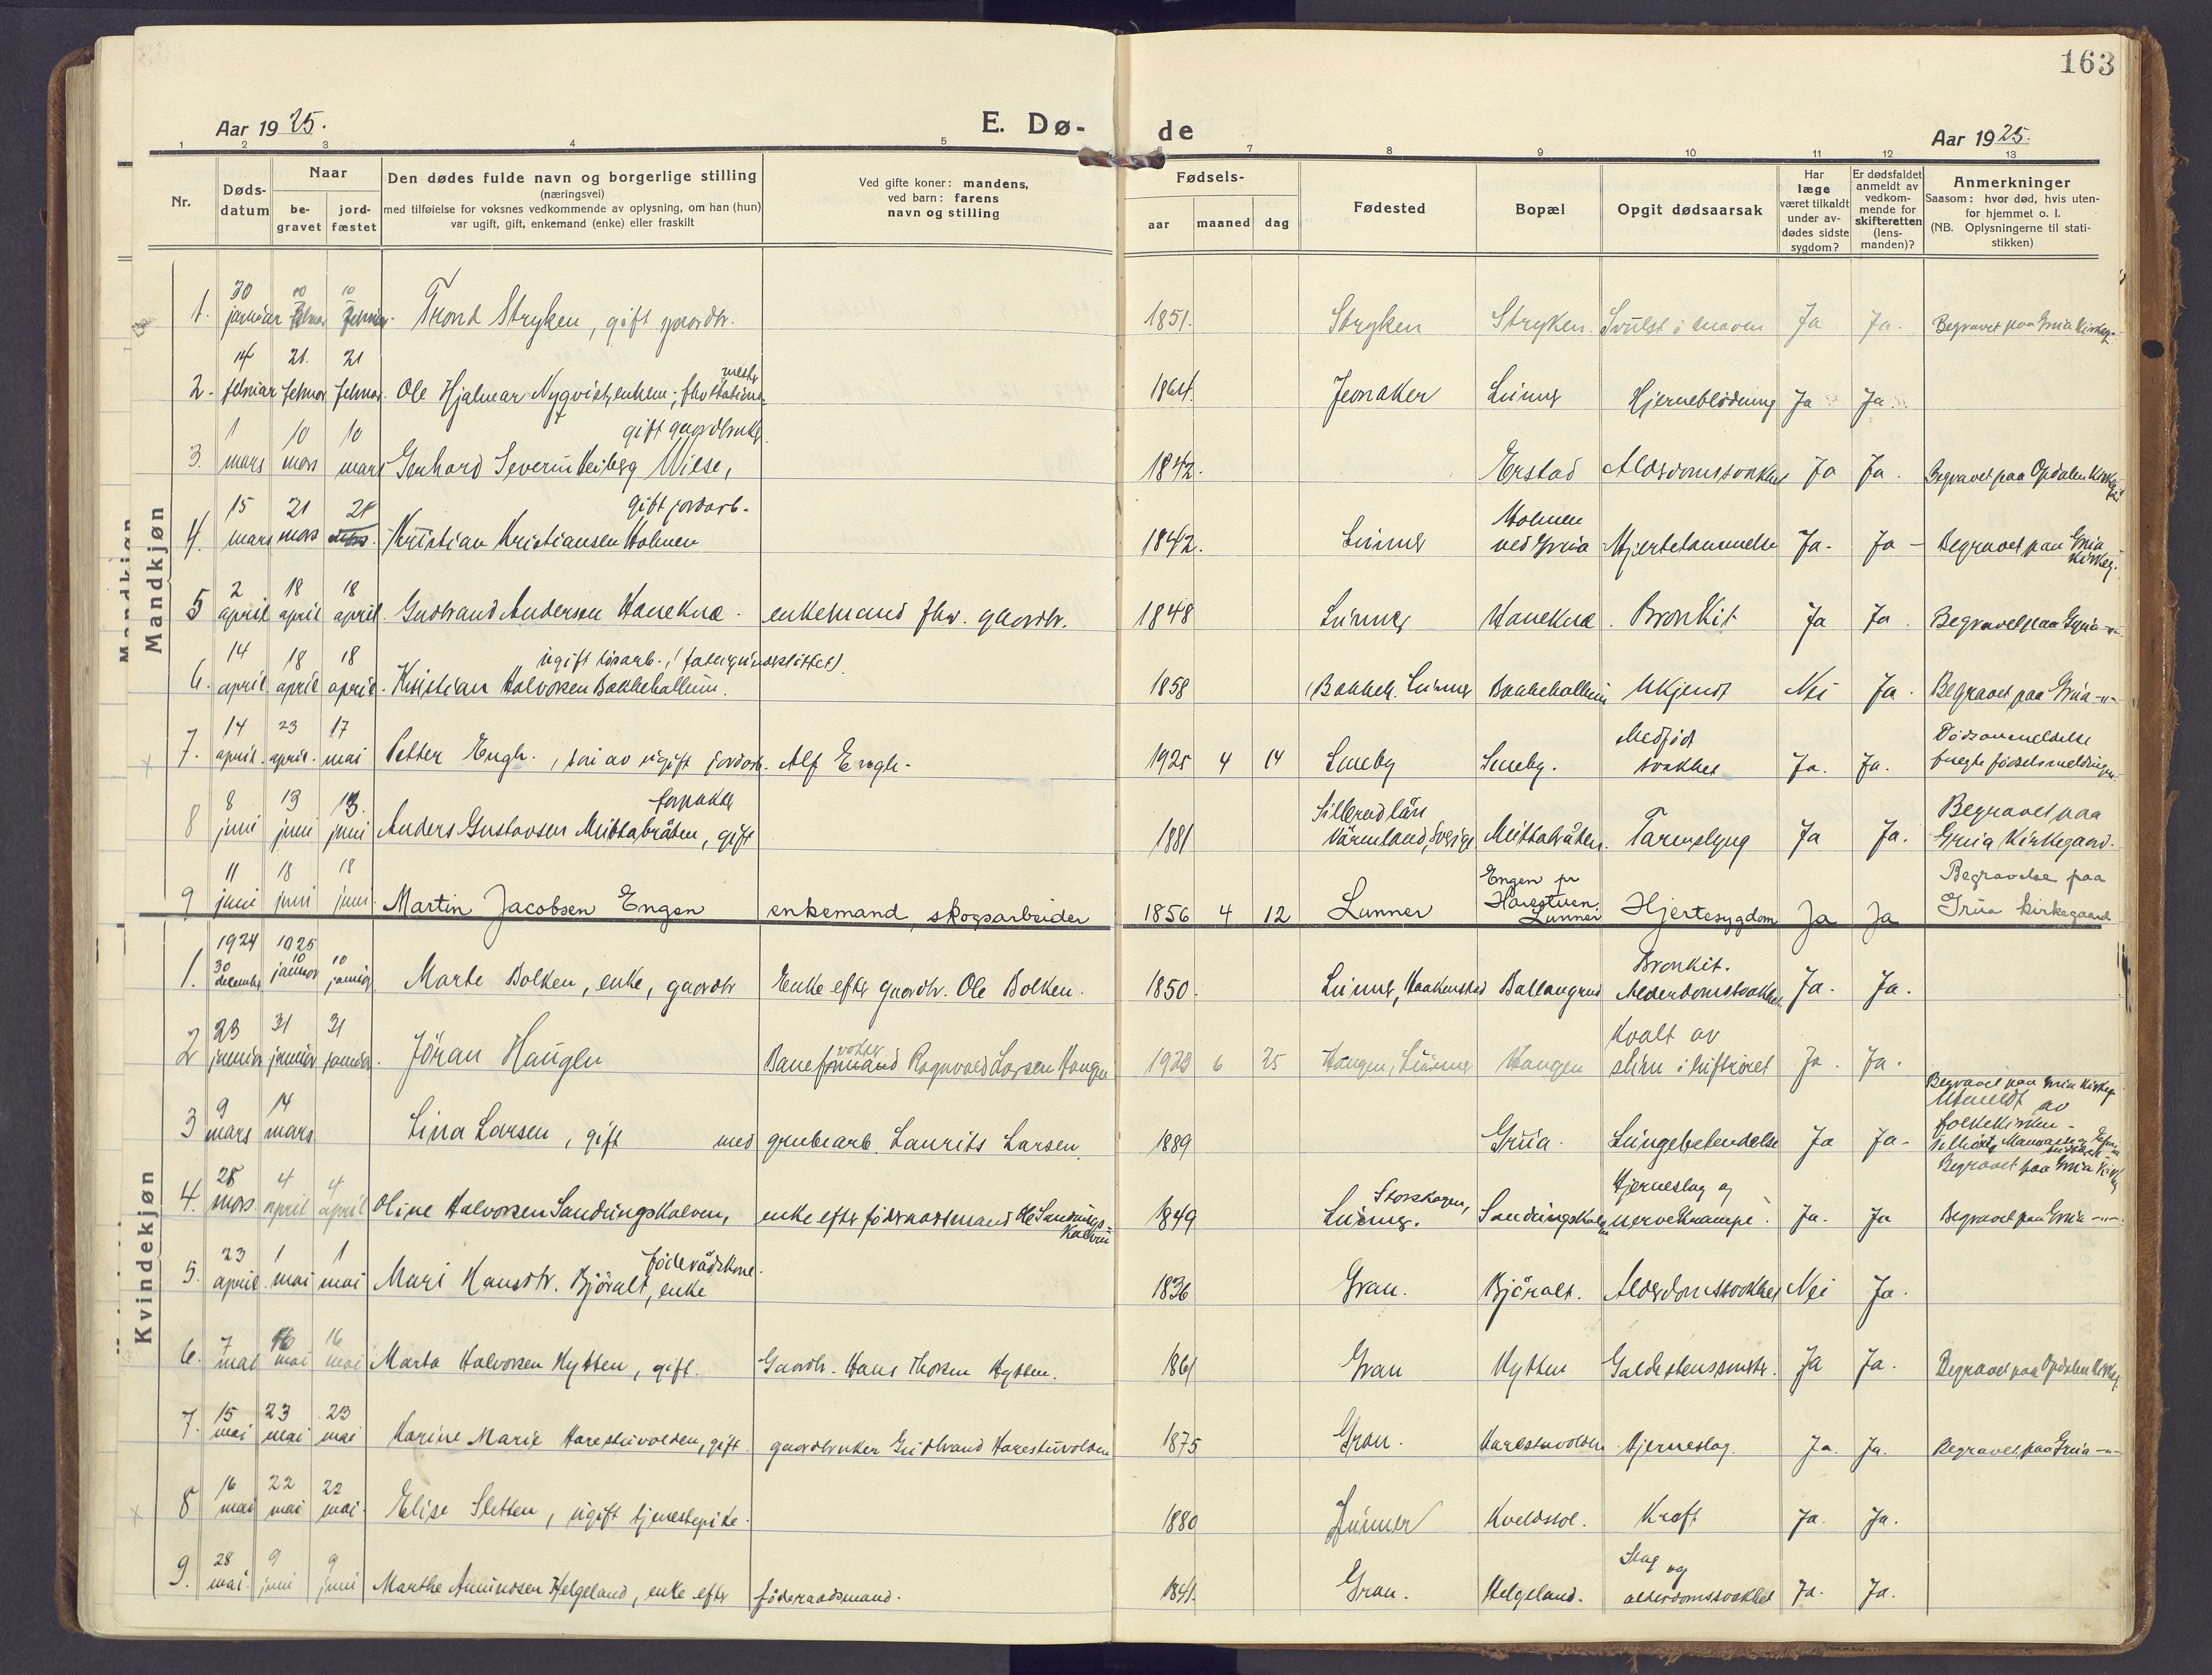 163
Aar 1925.
E. Dø-
de
Aar 1925.
1 2 3 4 5 6 7 8 9 10 11 12 13
Nr.
Døds-
datum
Naar
be-
gravet
jord-
fæstet
Den dødes fulde navn og borgerlige stilling
(næringsvei)
med tilføielse for voksnes vedkommende av oplysning, om han (hun)
var ugift, gift, enkemand (enke) eller fraskilt
Ved gifte koner: mandens,
ved barn: farens
navn og stilling
Fødsels-
aar maaned dag
Fødested
Bopæl
Opgit dødsaarsak
Har
læge
været tilkaldt
under av-
dødes sidste
sygdom?
Er dødsfaldet
anmeldt av
vedkom-
mende for
skifteretten
(lens-
manden)?
Anmerkninger
Saasom: hvor død, hvis uten-
for hjemmet o. l.
(NB. Oplysningerne til stati-
stikken)
Mandkjøn
1. 30 januar 10 februar 10 februar Trond Stryken, gift gaardbr. 1851. Stryken Stryken. Svulst i maven Ja Ja. Begravet paa Grua Kirkeg.
2. 14 februar 21. februar 21 februar. Ole Hjalmar Nyqvist, enkem. fhv stations-
mester 1864. Jevnaker Lunner Hjerneblödning Ja Ja
3. 1 mars 10 mars 10 mars Gerhard Severin Heiberg Wiese,
gift gaardbruker 1842. Erstad Alderdomssvakhet Ja Ja. Begravet paa Opdalen Kirkeg.
4. 15 mars 21 mars 21 Kristian Kristiansen Holmen
gift jordarb. 1842. Lunner Holmen
ved Grua Hjertelammelse Ja. Ja - Begravet paa Grua
Kirkeg.
5 2 april 18 april 18 april. Gudbrand Andersen Hanekne. enkemand fhv. gaardbr. 1848 Lunner Hanekne. Bronkit Ja Ja. Begravet paa Grua -"-
6. 14 april. 18 april 18 april. Kristian Halvorsen Bakkehallum.
ugift løsarb. (fattigunderstøttet). 1858 (Bakkeh. Lunner Bakkehallum Ukjendt Nei Ja. Begravet paa Grua -"-
7. 14 april. 23 april. 17 mai Petter Engh., søn av ugift jordarb. Alf Engh. 1925 4 14 Smeby Smeby. Medfødt
svakhet Ja. Ja. Dødsanmeldelse
8 8 juni 13 juni 13. juni Anders Gustavsen Mittabråten, gift
forpakter 1881 Sillerud län
Värmland, Sverige Mittabråten. Tarmslyng Ja Ja. Begravet paa
Grua Kirkegaard.
9 11 juni 18 juni 18 juni. Martin Jacobsen Engen enkemand, skogsarbeider 1856 4 12 Lunner Engen pr
Harestuen.
Lunner Hjertesygdom Ja Ja Begravelse paa
Grua kirkegaard
Kvindekjøn
1. 1924 30 december 1925 10 januar 10 januar. Marte Bolken, enke, gaardbr Enke efter gaardbr. Ole Bolken. 1850. Lunner, Haakenstad Ballangrud Bronkit.
Alderdomssvakhet. Ja. Ja.
2 23 januar 31 januar 31 januar. Jöran Haugen Banevokter Ragnvald Larsen Haugen 1923 6 25 Haugen, Lunner Haugen Kvalt av
slim i luftröret Ja. Ja.
3 9 mars 14 mars Lina Larsen, gift med grubearb. Laurits Larsen. 1889 Grua. Lungebetendelse Ja Ja. Begravet paa Grua Kirkeg
Utmeldt av
folkekirken.
Begravet paa Grua Kirkeg
4. 28 mars. 4 april 4 april Oline Halvorsen Sandungskalven, enke efter föderaadsmand Ole Sandungs-
kalven 1849 Storskogen,
Lunner. Sandungskalven Hjerneslag og
nervekrampe. Ja. Ja Begravet paa Grua -"-
5. 23 april. 1 mai 1 mai Mari Hansdtr. Björalt, enke
föderådskone. 1836 Gran. Björalt. Alderdomssvakhet Nei Ja.
6. 7 mai 16 mai 16 mai Marta Halvorsen Hytten, gift. Gaardbr. Hans Thorsen Hytten. 1861 Gran Hytten Galdestenssmerter. Ja Ja. Begravet paa Opdalen Kirkeg.
7. 15 mai 23 mai 23 mai Karine Marie Harestuvolden, gift gaardbruker Gudbrand Harestuvolden 1875 Gran. Harestuvolden Hjerneslag. Ja. Ja. Begravet paa Grua -"-
8 16 mai 22 mai 22 mai. Elise Sletten, ugift tjenestepike. 1880 Lunner Kveldssol. Kræft Ja. Ja.
9. 28 mai. 9 juni 9 juni Marthe Amundsen Helgeland, enke efter föderaadsmand. 1841. Gran. Helgeland. Slag og
alderdomssvakhet Ja. Ja.